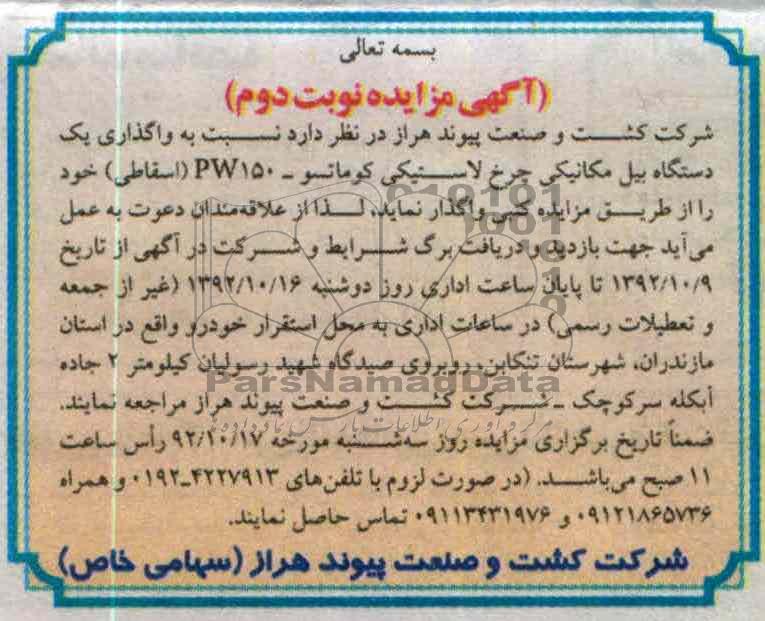 بسمه تعالی
(آگهی مزایده نوبت دوم)
شرکت کشت و صنعت پیوند هراز در نظر دارد نسبت به واگذاری یک
دستگاه بیل مکانیکی چرخ لاستیکی کوماتسو ـ PW۱۵۰ (اسقاطی) خود
را از طریق مزایده کتبی واگذار نماید، لذا از علاقه‌مندان دعوت به عمل
می‌آید جهت بازدید و دریافت برگ شرایط و شرکت در آگهی از تاریخ
۱۳۹۲/۱۰/۹ تا پایان ساعت اداری روز دوشنبه ۱۳۹۲/۱۰/۱۶ (غیر از جمعه
و تعطیلات رسمی) در ساعات اداری به محل استقرار خودرو واقع در استان
مازندران، شهرستان تنکابن، روبروی صیدگاه شهید رسولیان کیلومتر ۲ جاده
ParsNamadData
آبکله سرکوچک ـ شرکت کشت و صنعت پیوند هراز مراجعه نمایند.
ضمناً تاریخ برگزاری مزایده روز سه‌شنبه مورخه ۹۲/۱۰/۱۷ رأس ساعت
۱۱ صبح می‌باشد. (در صورت لزوم با تلفن‌های ۴۲۲۷۹۱۳-۰۱۹۲ و همراه
۰۹۱۲۱۸۶۵۷۳۶ و ۰۹۱۱۳۴۳۱۹۷۶ تماس حاصل نمایند.
شرکت کشت و صنعت پیوند هراز (سهامی خاص)